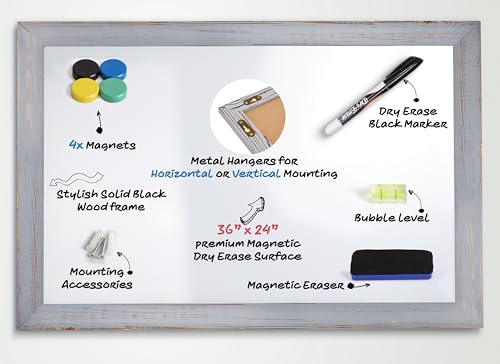 4x Magnets
Metal Hangers for
Horizontal or Vertical Mounting
Dry Erase
Black Marker
Stylish Solid Black
Wood frame
36" x 24"
premium Magnetic
Dry Erase Surface
Bubble Level
Mounting
Accessories
Magnetic Eraser